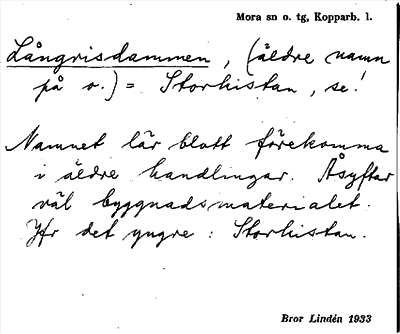 Mora sn o. tg, Kopparb. l.
Långrisdammen, (äldre namn
på o.) = Storhistan, se!
Namnet lär blott förekomma
i äldre handlingar. Åsyftar
väl byggnadsmaterialet.
Jfr det yngre: Storhistan.
Bror Lindén 1933